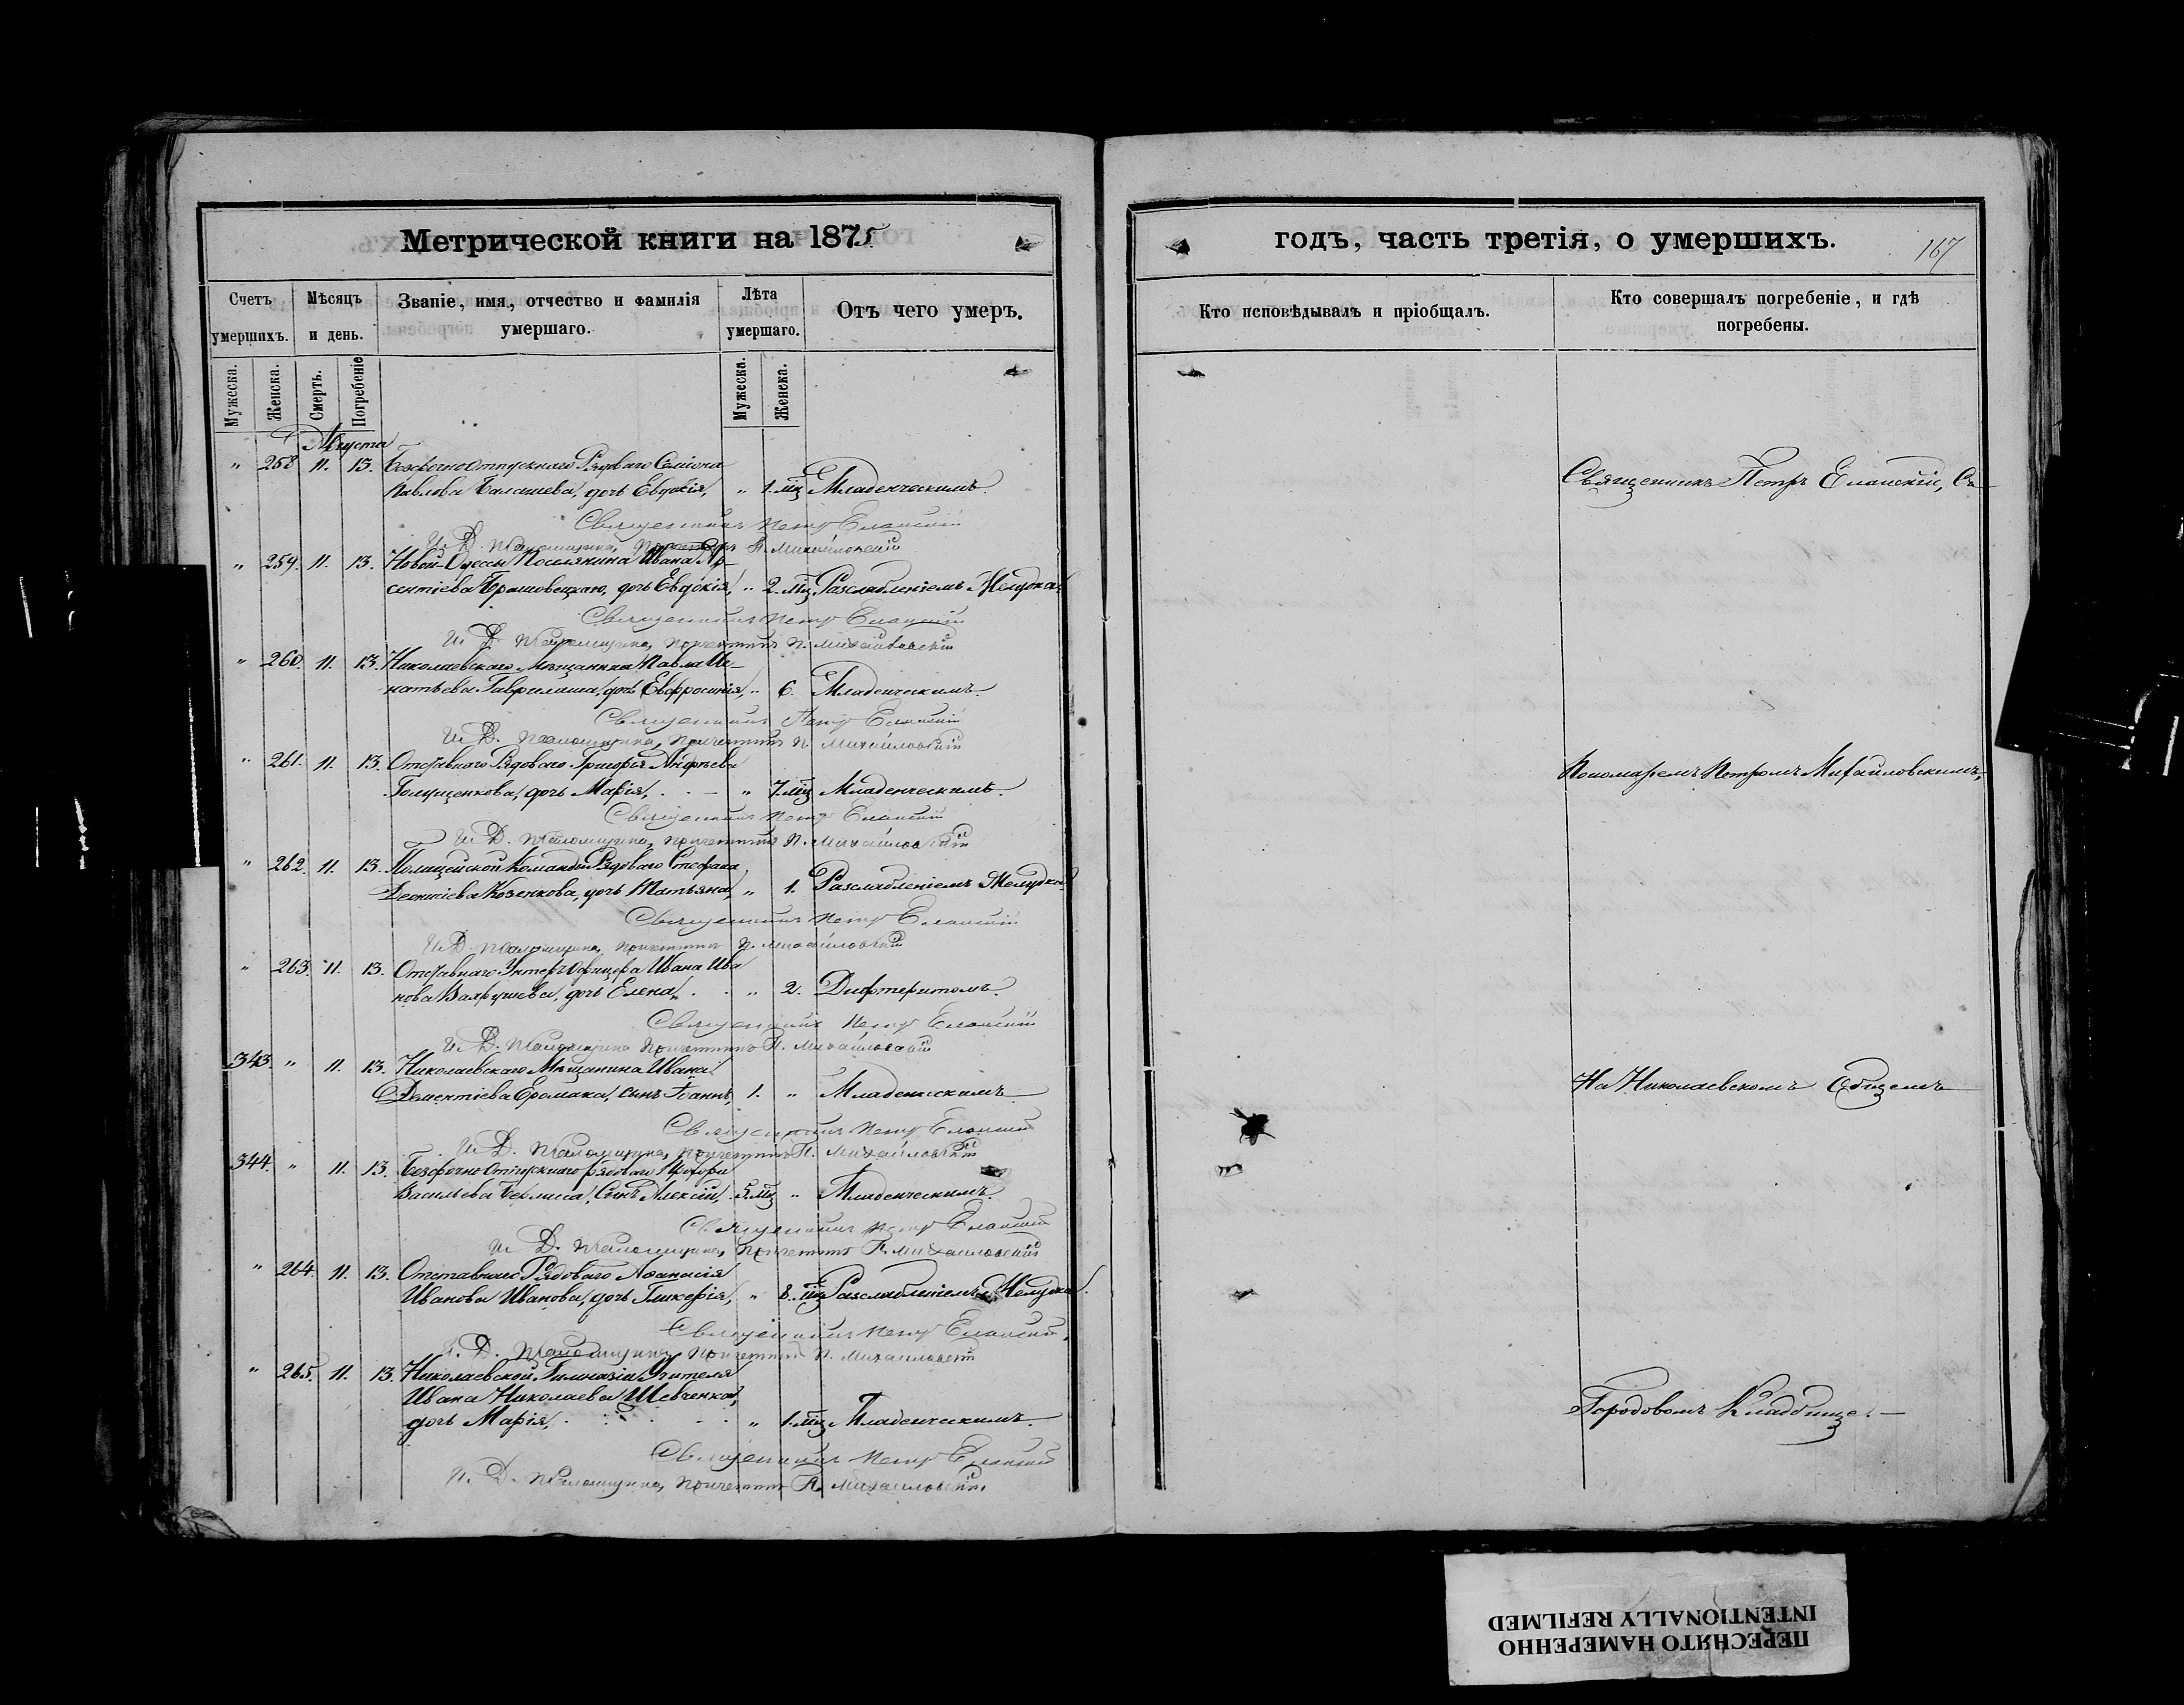 Метрической книги на 1875
годъ, часть третія, о умершихъ.
167
Счетъ умершихъ.
Мѣсяцъ и день.
Званіе, имя, отчество и фамилія умершаго.
Лѣта умершаго.
Отъ чего умеръ.
Кто исповѣдывалъ и пріобщалъ.
Кто совершалъ погребеніе, и гдѣ погребены.
Мужеска. Женска. Смерть. Погребеніе Мужеска. Женска.
Августа
" 258 11. 13. Безсрочноотпускнаго Рядоваго Семіона
Павлова Балашева, дочь Евдокія, " 1. мц Младенческимъ.
Священникъ Петръ Еланскій
И. Д. Псаломщика, Причетникъ П. Михайловскій
" 259. 11. 13. Новой-Одессы Поселянина Ивана Ар-
сентіева Брашовецкаго, дочь Евдокія, " 2. мц Разслабленіемъ Желудка.
Священникъ Петръ Еланскій
И. Д. Псаломщика, Причетникъ П. Михайловскій
" 260. 11. 13. Николаевскаго Мѣщанина Павла Иг-
натьева Гаврилаша, дочь Евфросинія, " 6. Младенческимъ.
Священникъ Петръ Еланскій
И. Д. Псаломщика, Причетникъ П. Михайловскій
" 261. 11. 13. Отставнаго Рядоваго Григорія
Голущенкова, дочь Марія, " 7. мц Младенческимъ.
Священникъ Петръ Еланскій
И. Д. Псаломщика, Причетникъ П. Михайловскій
" 262. 11. 13. Полицейской Команды Рядоваго Стефана
Леонтіева Козенкова, дочь Татьяна, " 1. Разслабленіемъ Желудка.
Священникъ Петръ Еланскій
И. Д. Псаломщика, Причетникъ П. Михайловскій
" 263. 11. 13. Отставнаго Унтеръ Офицера Ивана Ива
нова дочь Елена, " 2. Дифтеритомъ.
Священникъ Петръ Еланскій
И. Д. Псаломщика Причетникъ П. Михайловскій
343. " 11. 13. Николаевскаго Мѣщанина Ивана
Дементіева Ермака, сынъ Іоаннъ, 1. " Младенческимъ
Священникъ Петръ Еланскій
И. Д. Псаломщика, Причетникъ П. Михайловскій
344. " 11. 13. Безсрочно Отпускнаго рядоваго
Васильева сынъ Алексій, 5. мц " Младенческимъ.
Священникъ Петръ Еланскій
И. Д. Псаломщика, Причетникъ П. Михайловскій
" 264. 11. 13. Отставнаго Рядоваго Афанасія
Иванова Иванова, дочь Гликерія, " 8. мц Разслабленіемъ Желудка.
Священникъ Петръ Еланскій
И. Д. Псаломщика, Причетникъ П. Михайловскій
" 265. 11. 13. Николаевской Гимназіи Учителя
Ивана Николаева Шевченка,
дочь Марія, " 1. мц Младенческимъ.
Священникъ Петръ Еланскій
И. Д. Псаломщика, Причетникъ П. Михайловскій
Священникъ Петръ Еланскій, Съ
Пономаремъ Петромъ Михайловскимъ,
На Николаевскомъ Общемъ
Городовомъ Кладбище.
ПЕРЕСНЯТО НАМЕРЕННО
INTENTIONALLY REFILMED